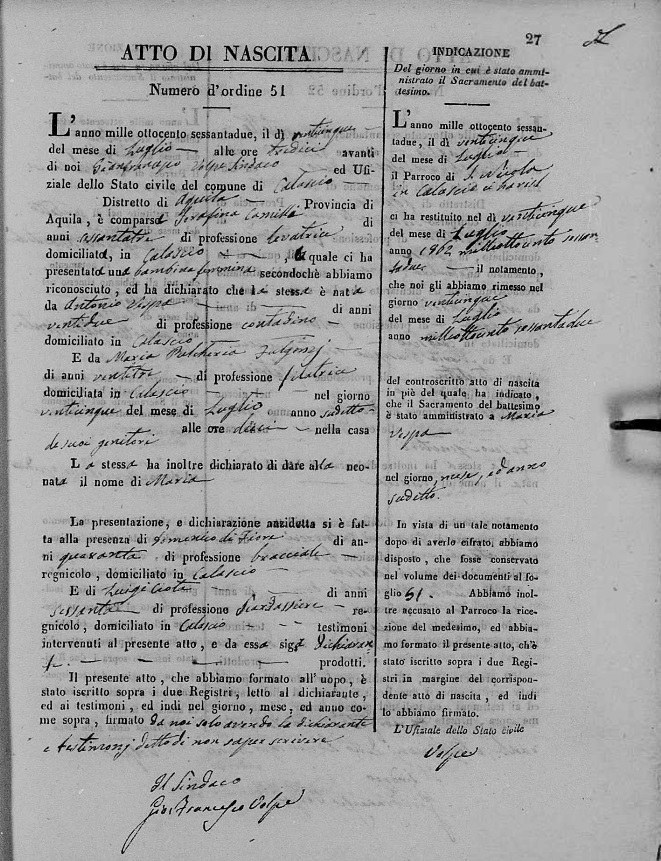 27
ATTO DI NASCITA
Numero d'ordine 51
L'anno mille ottocento sessantadue, il dì venticinque
del mese di Luglio alle ore tredici avanti
di noi Gianfrancesco Volpe Sindaco ed Ufi-
ziale dello Stato civile del comune di Calascio
Distretto di Aquila Provincia di
Aquila, è comparsa Serafina Camilla di
anni sessantatre di professione levatrice
domiciliata, in Calascio quale ci ha
presentato una bambina femmina secondochè abbiamo
riconosciuto, ed ha dichiarato che la stessa è nata
da Antonio Vespa di anni
ventidue di professione contadino
domiciliato in Calascio
E da Maria Pulcheria
di anni ventitre di professione filatrice
domiciliata in Calascio nel giorno
venticinque del mese di Luglio anno sudetto
alle ore dieci nella casa
de suoi genitori
La stessa ha inoltre dichiarato di dare alla neo-
nata il nome di Maria
La presentazione, e dichiarazione anzidetta si è fat-
ta alla presenza di Domenico di Fiore di an-
ni quaranta di professione bracciale
regnicolo, domiciliato in Calascio
E di Luigi di anni
sessanta di professione Scardassiere re-
gnicolo, domiciliato in Calascio testimoni
intervenuti al presente atto, e da essa sigª dichiaran
te prodotti.
Il presente atto, che abbiamo formato all'uopo, è
stato iscritto sopra i due Registri, letto al dichiarante,
ed ai testimoni, ed indi nel giorno, mese, ed anno co-
me sopra, firmato da noi solo avendo la dichiarante
e testimonj detto di non saper scrivere
Il Sindaco
Gio: Francesco Volpe
INDICAZIONE
Del giorno in cui è stato ammi-
nistrato il Sacramento del bat-
tesimo.
L'anno mille ottocento sessan-
tadue, il dì venticinque
del mese di Luglio
il Parroco di S. Nicola
in Calascio
ci ha restituito nel dì venticinque
del mese di Luglio
anno 1862 milleottocento sessan
tadue il notamento,
che noi gli abbiamo rimesso nel
giorno venticinque
del mese di Luglio
anno milleottocento sessantadue
del controscritto atto di nascita
in piè del quale ha indicato,
che il Sacramento del battesimo
è stato amministrato a Maria
Vespa
nel giorno, mese, ed anno
sudetto.
In vista di un tale notamento
dopo di averlo cifrato, abbiamo
disposto, che fosse conservato
nel volume dei documenti al fo-
glio 51. Abbiamo inol-
tre accusato al Parroco la rice-
zione del medesimo, ed abbia-
mo formato il presente atto, ch'è
stato iscritto sopra i due Regi-
stri in margine del corrispon-
dente atto di nascita, ed indi
lo abbiamo firmato.
L'Ufiziale dello Stato civile
Volpe